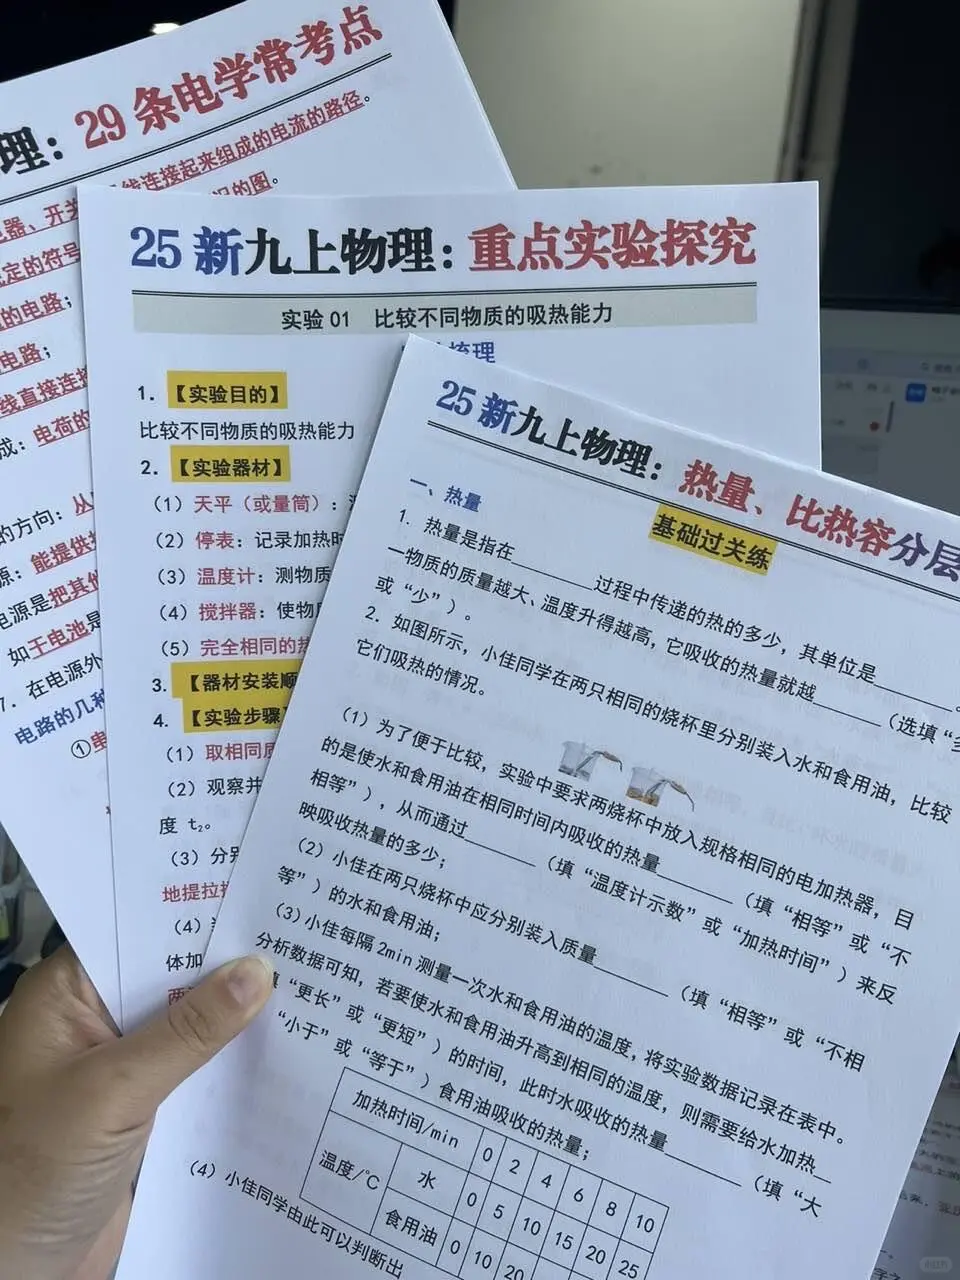 理：29条电学常考点
线连接起来组成的电流的路径。
器、开关
况的图。
定的符号
的电路；
电路；
线直接连接
成：电荷的
的方向：从
源：能提供
电源是把其他
如干电池是
7．在电源外
电路的几种
①
25新九上物理：重点实验探究
实验01 比较不同物质的吸热能力
梳理
1．【实验目的】
比较不同物质的吸热能力
2．【实验器材】
（1）天平（或量筒）：
（2）停表：记录加热时
（3）温度计：测物质
（4）搅拌器：使物质
（5）完全相同的热
3．【器材安装顺
4．【实验步骤】
（1）取相同质
（2）观察并
度 t₂。
（3）分别
地提拉
（4）
体加
两
25新九上物理：热量、比热容分层
基础过关练
一、热量
1．热量是指在______过程中传递的热的多少，其单位是______。
一物质的质量越大、温度升得越高，它吸收的热量就越______（选填“多”
或“少”）。
2．如图所示，小佳同学在两只相同的烧杯里分别装入水和食用油，比较
它们吸热的情况。
（1）为了便于比较，实验中要求两烧杯中放入规格相同的电加热器，目
的是使水和食用油在相同时间内吸收的热量______（填“相等”或“不
相等”），从而通过______（填“温度计示数”或“加热时间”）来反
映吸收热量的多少；
（2）小佳在两只烧杯中应分别装入质量______（填“相等”或“不相
等”）的水和食用油；
（3）小佳每隔2min测量一次水和食用油的温度，将实验数据记录在表中。
分析数据可知，若要使水和食用油升高到相同的温度，则需要给水加热__
填“更长”或“更短”）的时间，此时水吸收的热量______（填“大
“小于”或“等于”）食用油吸收的热量；
加热时间/min 0 2 4 6 8 10
温度/℃ 水 0 5 10 15 20 25
食用油 0 10 20
（4）小佳同学由此可以判断出